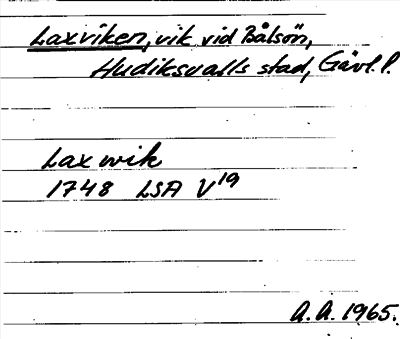 Laxviken, vik vid Bålsön,
Hudiksvalls stad, Gävl. l.
Lax wik
1748 LSA V19
A.A. 1965.